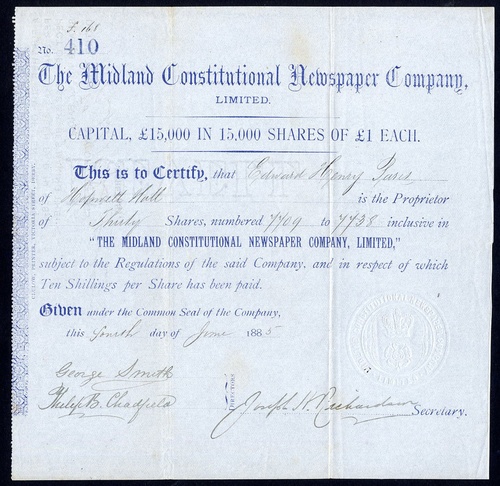 F. 168
No. 410
The Midland Constitutional Newspaper Company,
LIMITED.
CAPITAL, £15,000 IN 15,000 SHARES OF £1 EACH.
This is to Certify, that Edward Henry
of Hopwell Hall is the Proprietor
of Thirty Shares, numbered 7709 to 7738 inclusive in
"THE MIDLAND CONSTITUTIONAL NEWSPAPER COMPANY, LIMITED,"
subject to the Regulations of the said Company, and in respect of which
Ten Shillings per Share has been paid.
Given under the Common Seal of the Company,
this fourth day of June 1885
George Smith
Philip B. Chadfield
DIRECTORS
Joseph H. Richardson Secretary.